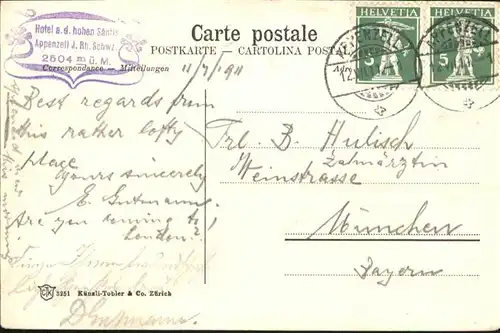 Carte postale
POSTKARTE – CARTOLINA POSTALE
Hotel a. d. hohen Säntis
Appenzell J. Rh. Schwz.
2504 m ü. M.
Correspondance — Mitteilungen
11/7/1911
HELVETIA HELVETIA
5 5
APPENZELL
Best regards from
this rather lofty
place
yours sincerely
E. Gutmann.
Are you coming to
London?
Frl. B. Hulisch
Zahnärztin
Weinstrasse
München
Bayern
3251 Künzli-Tobler & Co. Zürich